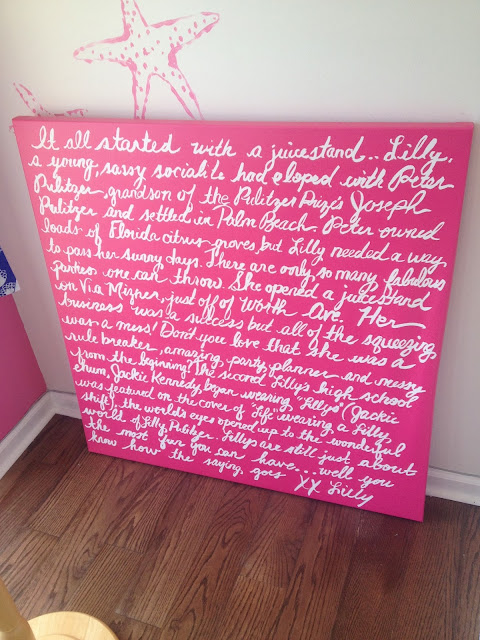 It all started with a juicestand.. Lilly,
a young, sassy socialite had eloped with Peter
Pulitzer, grandson of the Pulitzer Prize's Joseph
Pulitzer and settled in Palm Beach. Peter owned
loads of Florida citrus groves, but Lilly needed a way
to pass her sunny days. There are only so many fabulous
parties one can throw. She opened a juicestand
on Via Mizner, just off of Worth Ave. Her
business was a success but all of the squeezing
was a mess! Don't you love that she was a
rule breaker, amazing party planner and messy
from the beginning? The second Lilly's high school
chum, Jackie Kennedy, began wearing "Lillys" (Jackie
was featured on the cover of "Life" wearing a Lilly
shift), the world's eyes opened up to the wonderful
world of Lilly Pulitzer. Lillys are still just about
the most fun you can have...well you
know how the saying goes XX Lilly